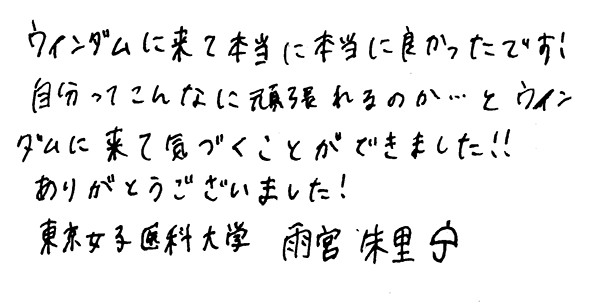 ウインダムに来て本当に本当に良かったです!
自分ってこんなに頑張れるのか…とウイン
ダムに来て気づくことができました!!
ありがとうございました!
東京女子医科大学 雨宮 朱里